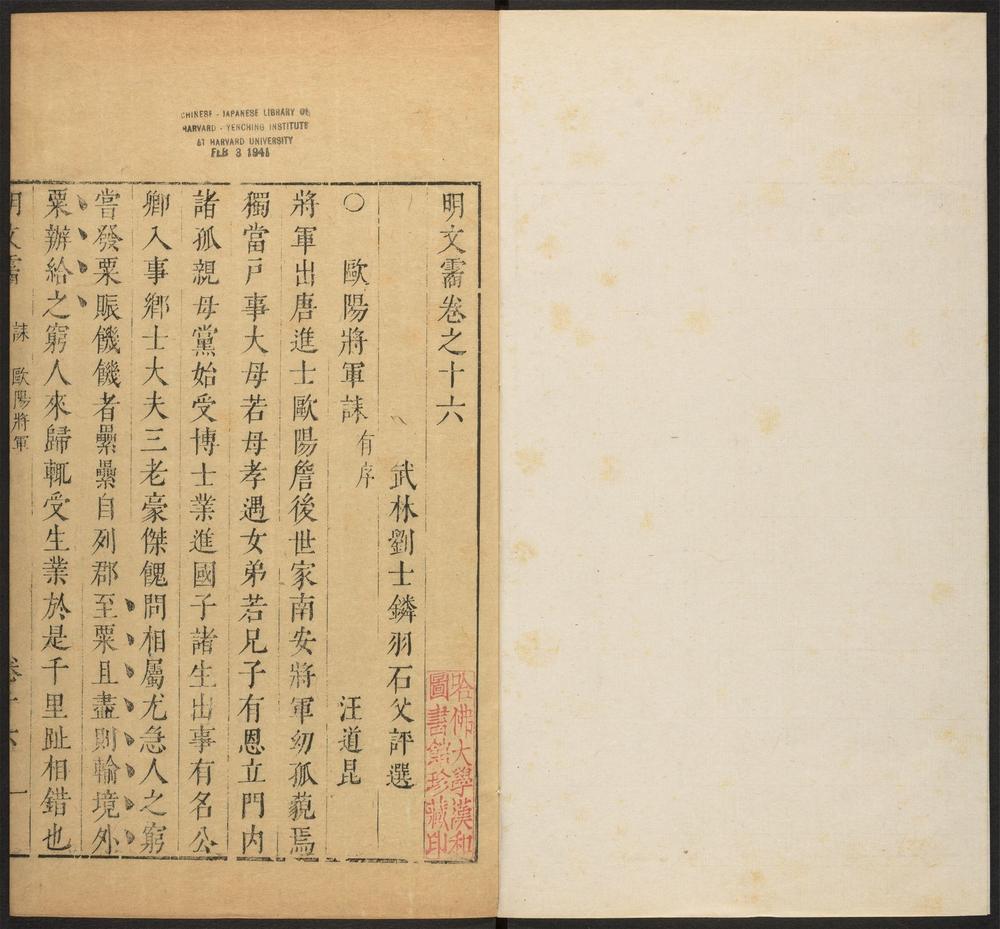 CHINESE - JAPANESE LIBRARY OF
HARVARD - YENCHING INSTITUTE
AT HARVARD UNIVERSITY
FEB 3 1941
明文霱卷之十六
武林劉士鏻羽石父評選
○歐陽將軍誄有序 汪道昆
將軍出唐進士歐陽詹後世家南安將軍幼孤藐焉
獨當戸事大母若母孝遇女弟若兄子有恩立門内
諸孤親母黨始受博士業進國子諸生出事有名公
卿入事鄉士大夫三老豪傑餽問相屬尤急人之窮
嘗發粟賑饑饑者纍纍自列郡至粟且盡則輸境外
粟辦給之窮人來歸輒受生業於是千里趾相錯也
明文霱 誄 歐陽將軍 卷十六 一
哈佛大學漢和
圖書館珍藏印